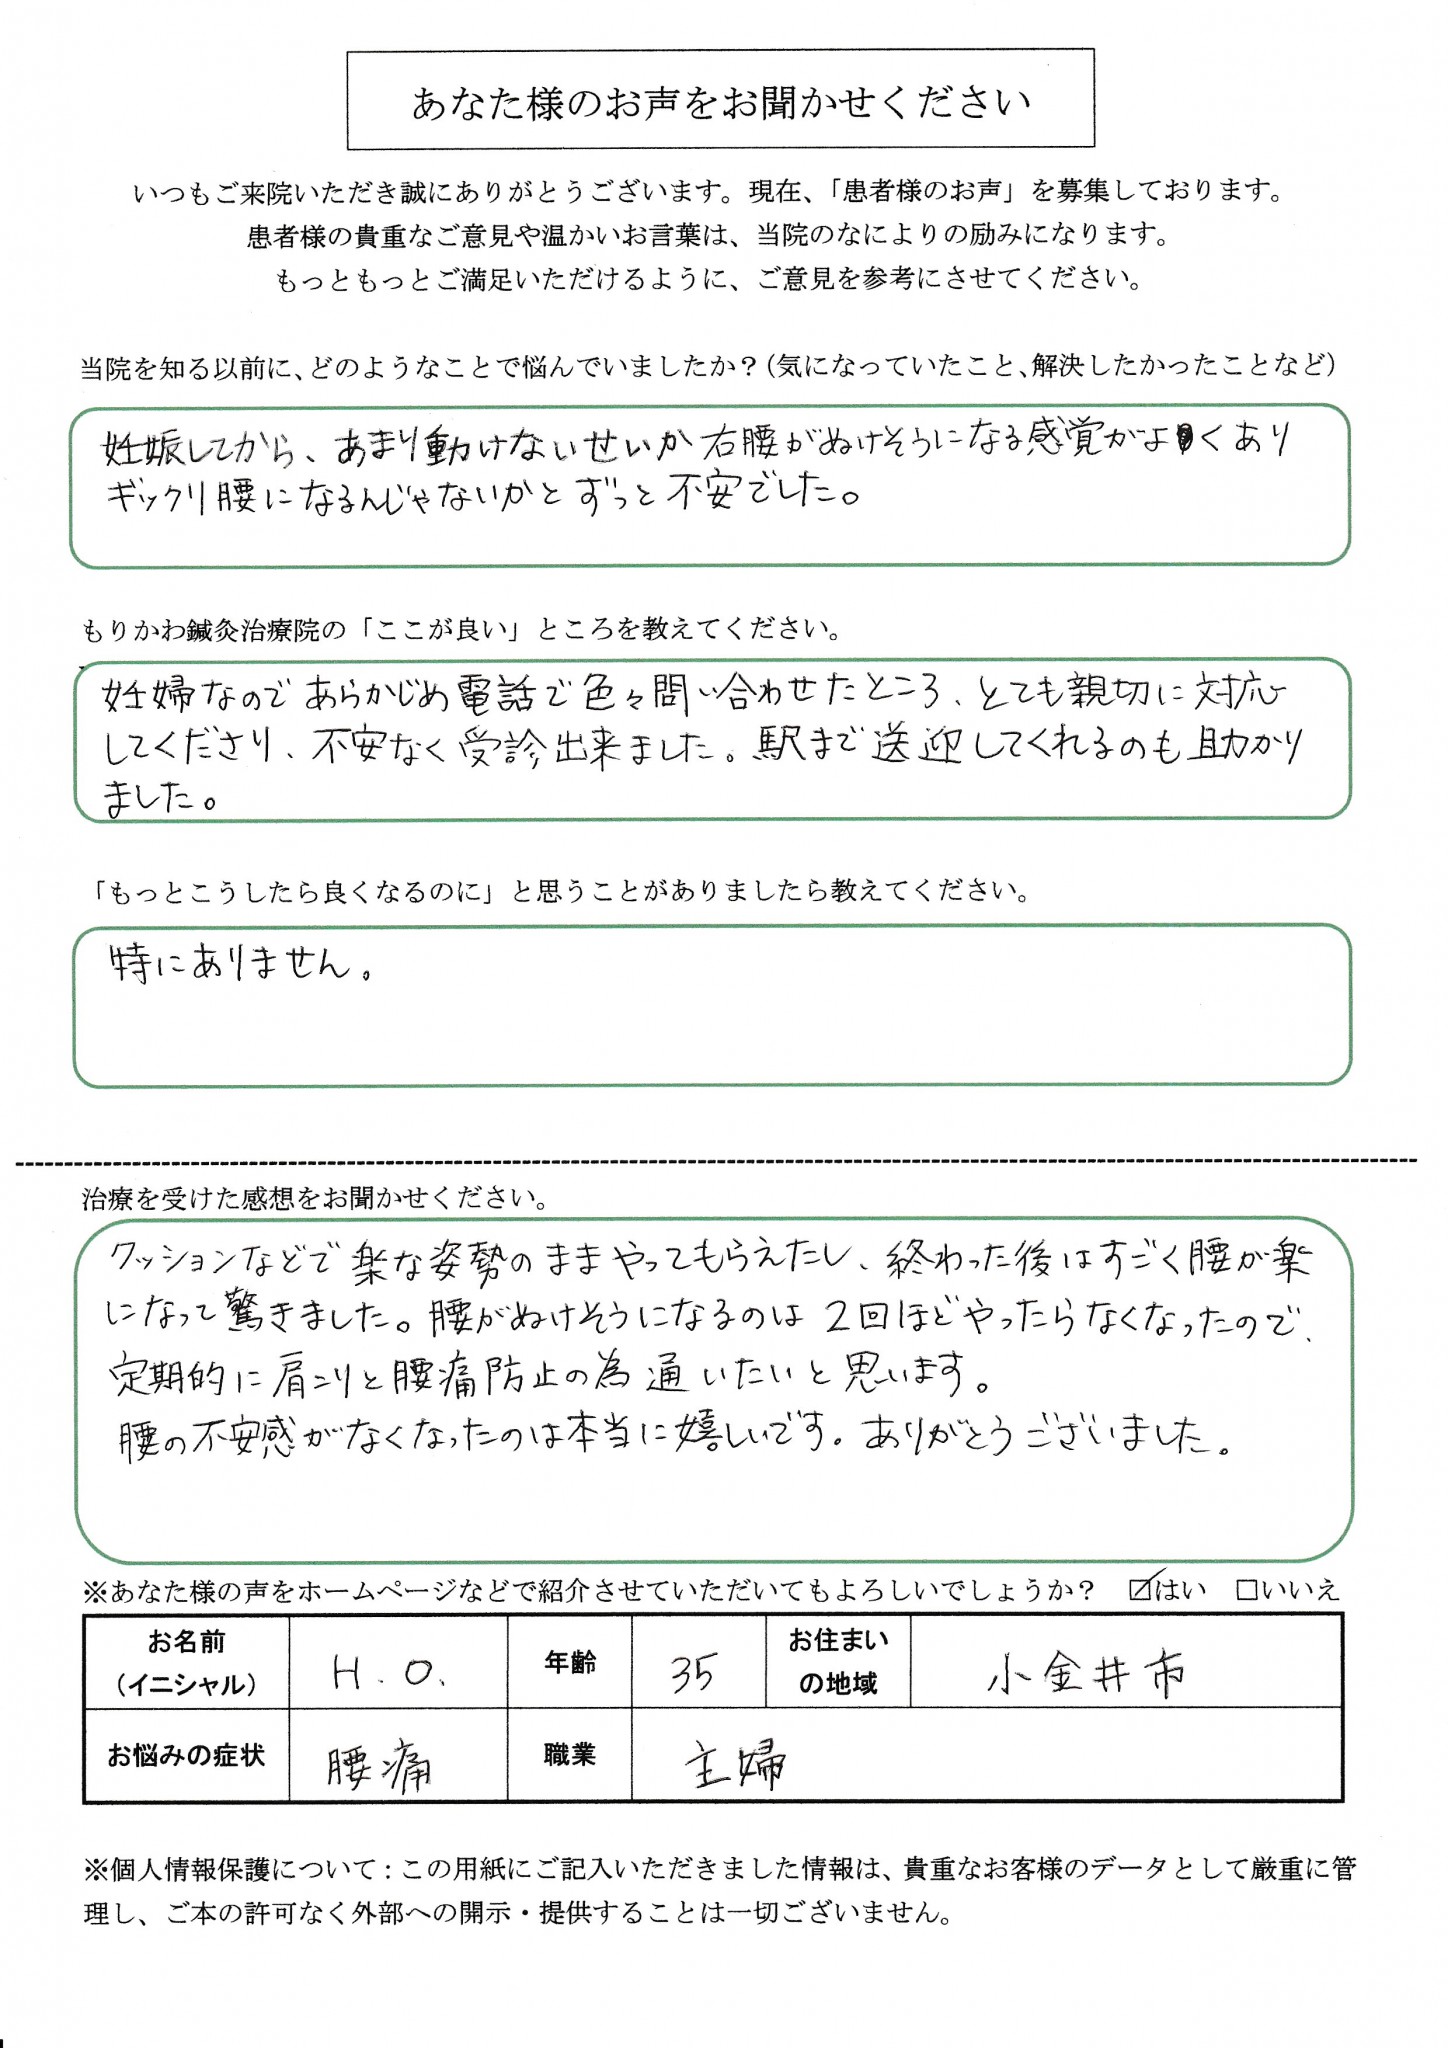 あなた様のお声をお聞かせください
いつもご来院いただき誠にありがとうございます。現在、「患者様のお声」を募集しております。
患者様の貴重なご意見や温かいお言葉は、当院のなによりの励みになります。
もっともっとご満足いただけるように、ご意見を参考にさせてください。
当院を知る以前に、どのようなことで悩んでいましたか？（気になっていたこと、解決したかったことなど）
妊娠してから、あまり動けないせいか右腰がぬけそうになる感覚がよくあり
ギックリ腰になるんじゃないかとずっと不安でした。
もりかわ鍼灸治療院の「ここが良い」ところを教えてください。
妊婦なのであらかじめ電話で色々問い合わせたところ、とても親切に対応
してくださり、不安なく受診出来ました。駅まで送迎してくれるのも助かり
ました。
「もっとこうしたら良くなるのに」と思うことがありましたら教えてください。
特にありません。
治療を受けた感想をお聞かせください。
クッションなどで楽な姿勢のままやってもらえたし、終わった後はすごく腰が楽
になって驚きました。腰がぬけそうになるのは2回ほどやったらなくなったので、
定期的に肩こりと腰痛防止の為通いたいと思います。
腰の不安感がなくなったのは本当に嬉しいです。ありがとうございました。
※あなた様の声をホームページなどで紹介させていただいてもよろしいでしょうか？ ☑はい □いいえ
お名前（イニシャル） H.O. 年齢 35 お住まいの地域 小金井市
お悩みの症状 腰痛 職業 主婦
※個人情報保護について：この用紙にご記入いただきました情報は、貴重なお客様のデータとして厳重に管
理し、ご本の許可なく外部への開示・提供することは一切ございません。